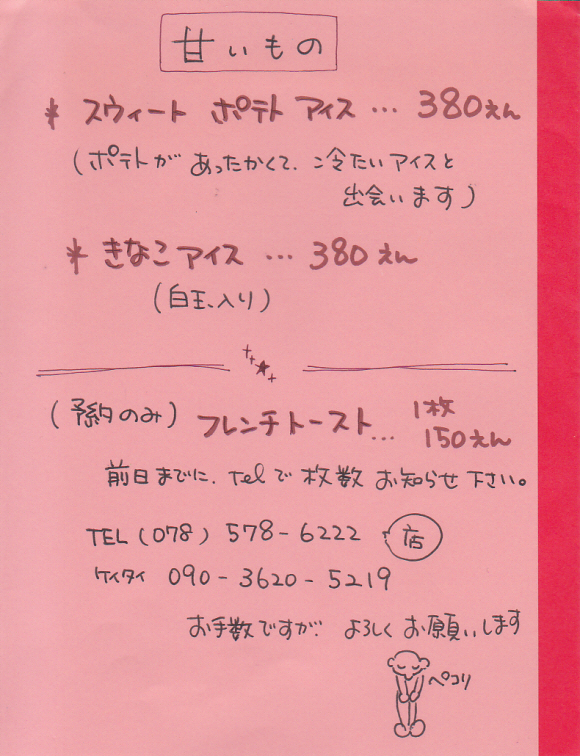 甘いもの
* スウィート ポテト アイス … 380えん
(ポテトが あったかくて、冷たいアイスと
出会います)
* きなこアイス … 380えん
(白玉、入り)
(予約のみ) フレンチトースト… 1枚
150えん
前日までに、Telで 枚数 お知らせ 下さい。
TEL (078) 578-6222 店
ケイタイ 090-3620-5219
お手数ですが、よろしく お願いします
ペコリ